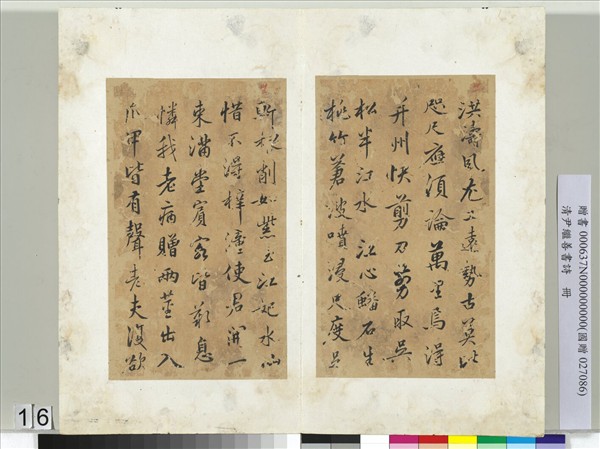 洪濤風尤工遠勢古莫比
咫尺應須論萬里焉得
并州快剪刀剪取吳
松半江水江心蟠石生
桃竹蒼波噴浸尺度足
斬根削如紫玉江妃水仙
惜不得梓潼使君開一
束滿堂賓客皆歎息
憐我老病贈兩莖出入
爪甲皆有聲老夫復欲
贈書 000637N000000000(國贈 027086)
清尹繼善書詩 冊
16